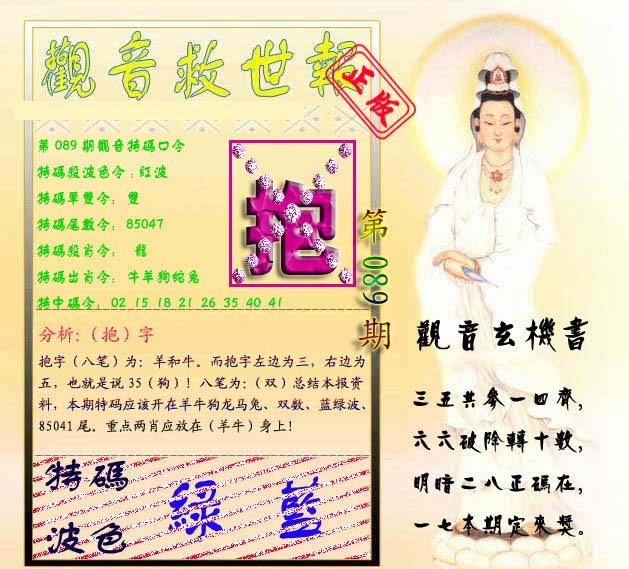 觀音救世報
正版
第089期觀音特碼口令
特碼殺波色令:紅波
特碼單雙令: 雙
特碼尾數令: 85047
特碼殺肖令: 龍
特碼出肖令: 牛羊狗蛇兔
特中碼令: 02 15 18 21 26 35 40 41
抱
第089期
分析:（抱）字
抱字（八笔）为：羊和牛。而抱字左边为三，右边为
五，也就是说35（狗）！八笔为：（双）总结本报资
料，本期特码应该开在羊牛狗龙马兔、双数、蓝绿波、
85041尾。重点两肖应放在（羊牛）身上！
特碼
波色
綠 藍
觀音玄機書
三五共參一四齊，
六六破除轉十數，
明暗二八正碼在，
一七本期定來獎。